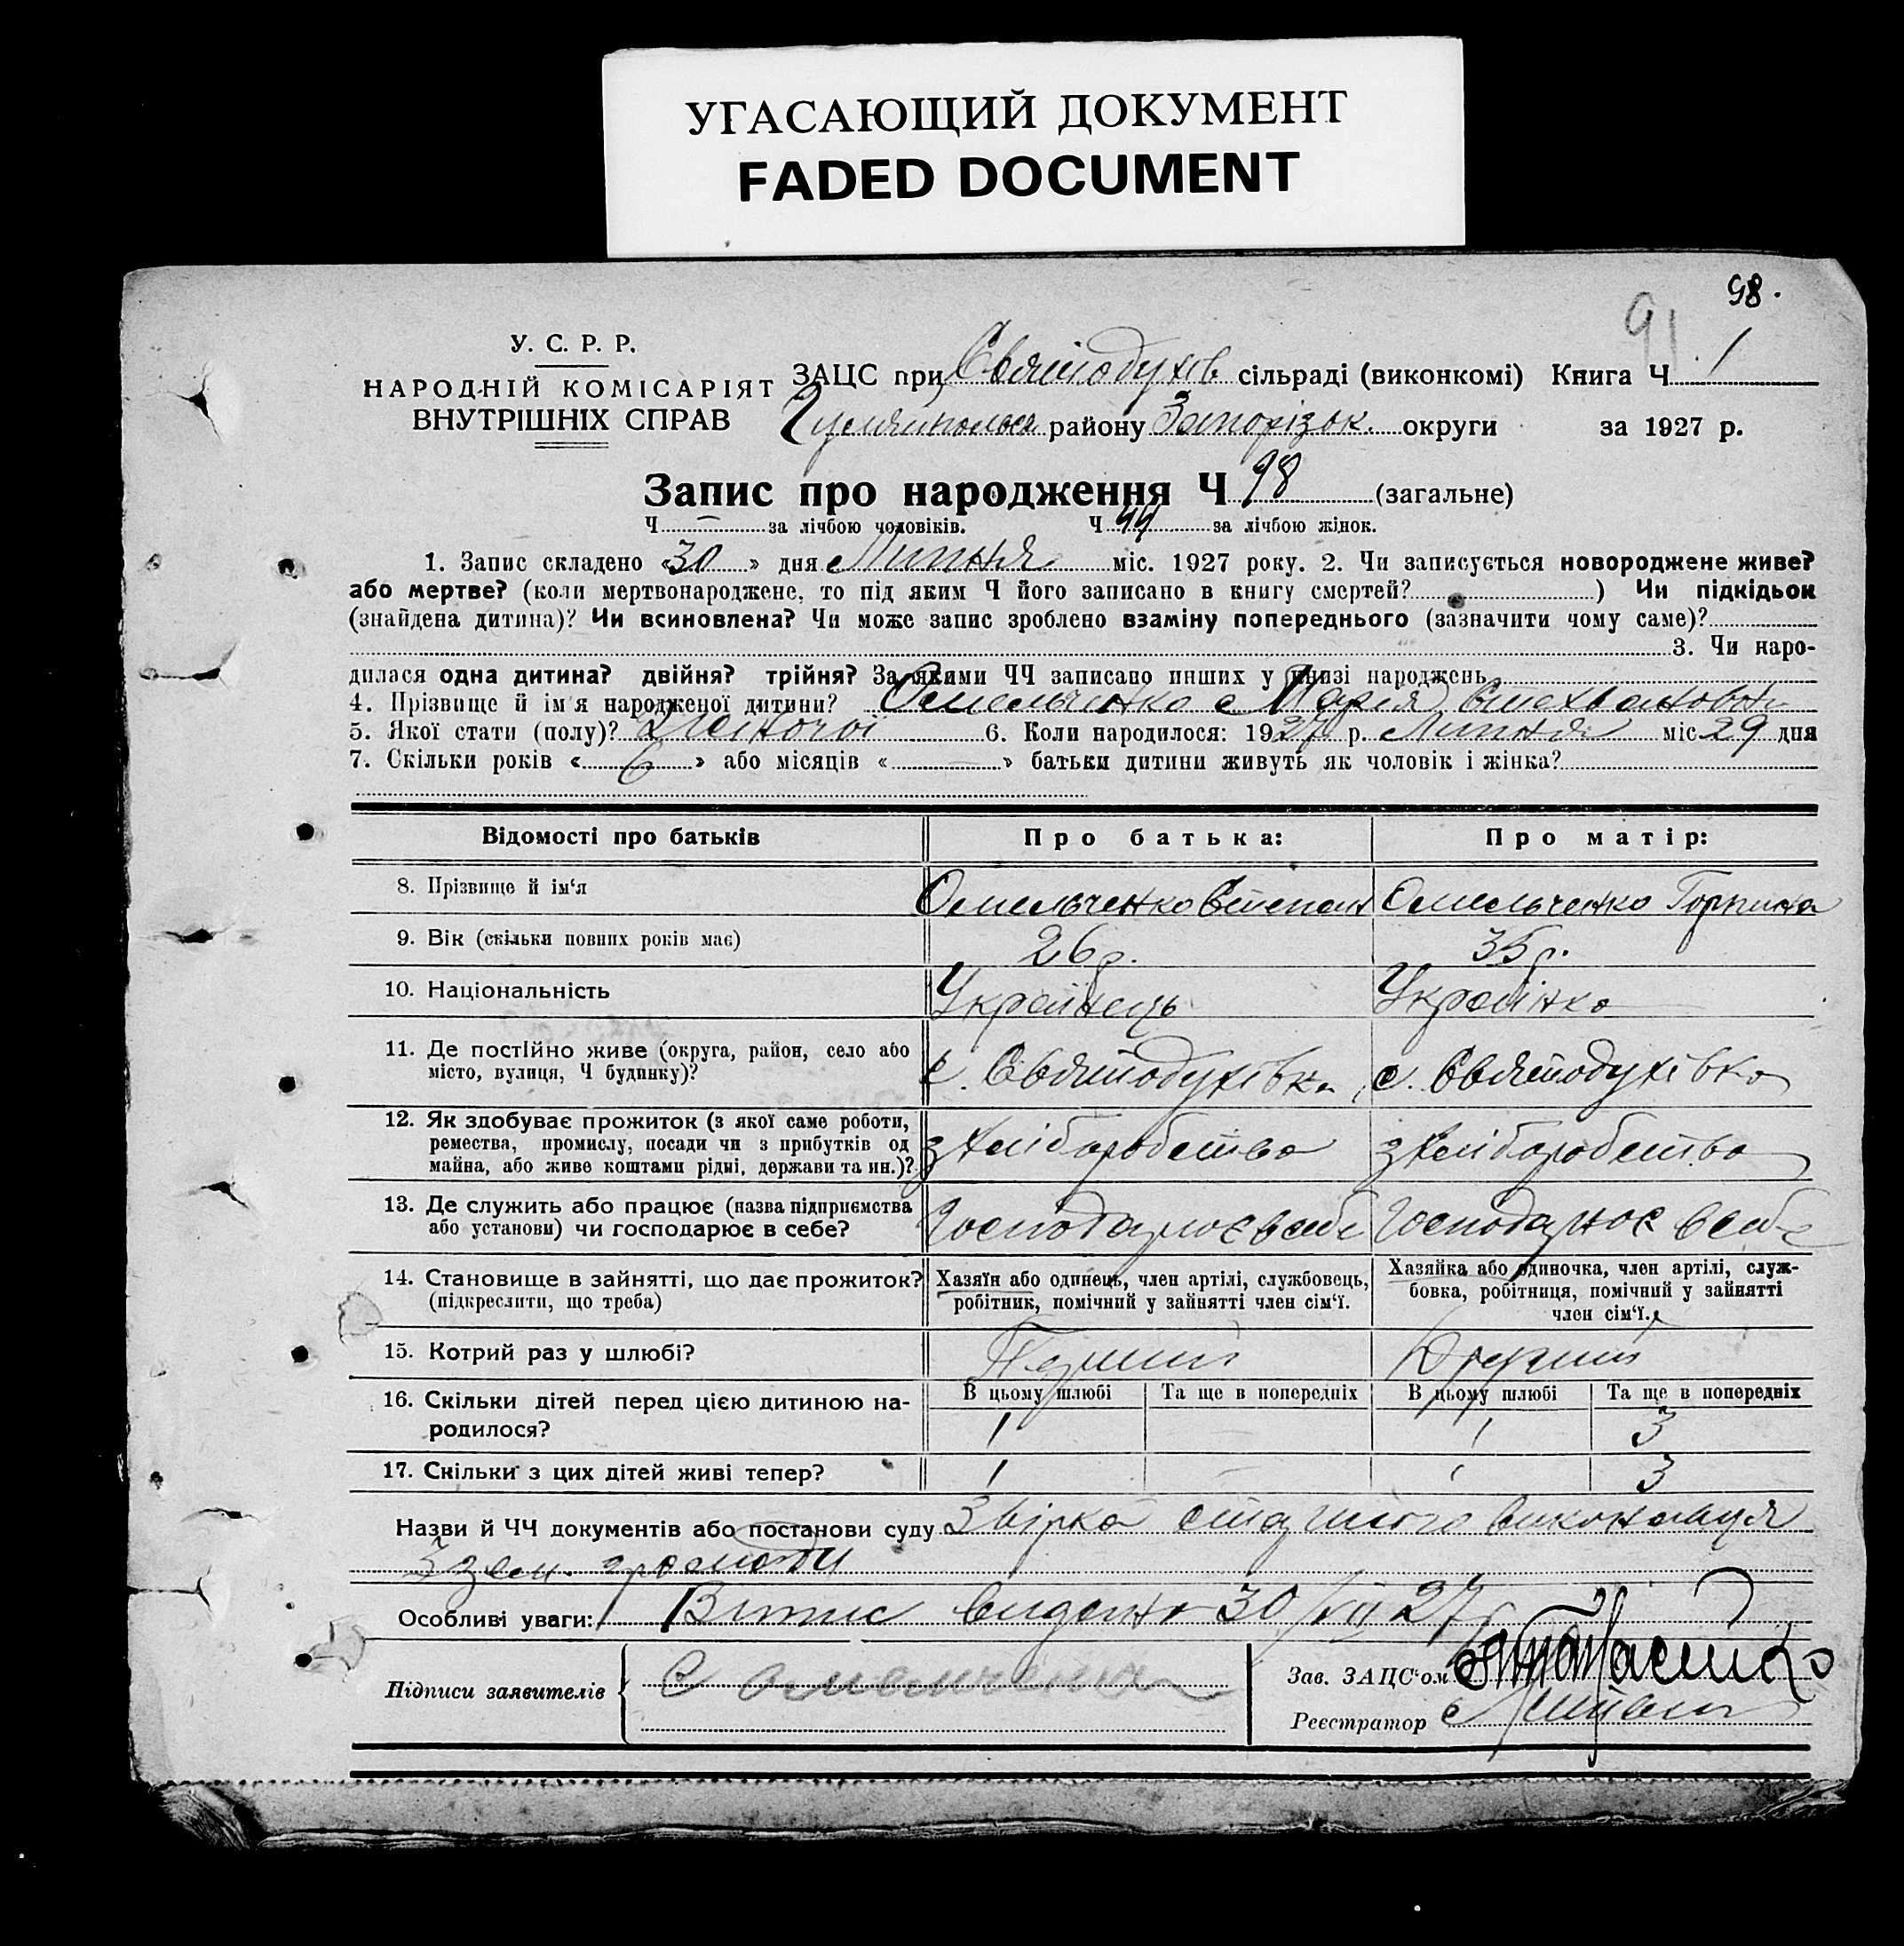 УГАСАЮЩИЙ ДОКУМЕНТ
FADED DOCUMENT
98.
91
У. С. Р. Р.
НАРОДНІЙ КОМІСАРІЯТ
ВНУТРІШНІХ СПРАВ
ЗАЦС при Святодухів сільраді (виконкомі) Книга Ч 1
району Запорізьк. округи за 1927 р.
Запис про народження Ч 98 (загальне)
Ч — за лічбою чоловіків. Ч 44 за лічбою жінок.
1. Запис складено «30» дня Липня міс. 1927 року. 2. Чи записується новороджене живе?
або мертве? (коли мертвонароджене, то під яким Ч його записано в книгу смертей? ) Чи підкідьок
(знайдена дитина)? Чи всиновлена? Чи може запис зроблено взаміну попереднього (зазначити чому саме)?
3. Чи наро-
дилася одна дитина? двійня? трійня? За якими ЧЧ записано инших у книзі народжень
4. Прізвище й ім'я народженої дитини? Омельченко Марія Стехвановна
5. Якої стати (полу)? Жіночої 6. Коли народилося: 1927 р. Липня міс 29 дня
7. Скільки років «6» або місяців « — » батьки дитини живуть як чоловік і жінка?
Відомості про батьків Про батька: Про матір:
8. Прізвище й ім'я Омельченко Степан Омельченко Горпина
9. Вік (скільки повних років має) 26 р. 35 р.
10. Національність Українець Українка
11. Де постійно живе (округа, район, село або
місто, вулиця, Ч будинку)? с. Святодухівка с. Святодухівка
12. Як здобуває прожиток (з якої саме роботи,
ремества, промислу, посади чи з прибутків од
майна, або живе коштами рідні, держави та ин.)? з хліборобства з хліборобства
13. Де служить або працює (назва підприємства
або установи) чи господарює в себе? Господарює в себе Господарює в себе
14. Становище в зайнятті, що дає прожиток?
(підкреслити, що треба)
Хазяїн або одинець, член артілі, службовець,
робітник, помічний у зайнятті член сім'ї.
Хазяйка або одиночка, член артілі, служ-
бовка, робітниця, помічний у зайнятті
член сім'ї.
15. Котрий раз у шлюбі? Перший Другий
В цьому шлюбі Та ще в попередніх В цьому шлюбі Та ще в попередніх
16. Скільки дітей перед цією дитиною на-
родилося? 1 — 1 3
17. Скільки з цих дітей живі тепер? 1 — 1 3
Назви й ЧЧ документів або постанови суду Звірка старшого виконавця
3 зем. громади
Особливі уваги: Витис видано 30/VII 27 р
Підписи заявителів С Омельченко
Зав. ЗАЦС'ом
Реєстратор